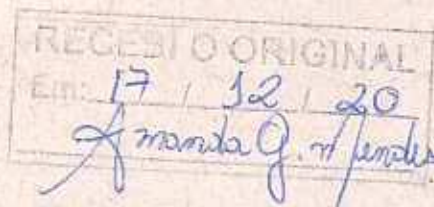 RECEBI O ORIGINAL
Em: 17 / 12 / 20
Amanda G. Mendes